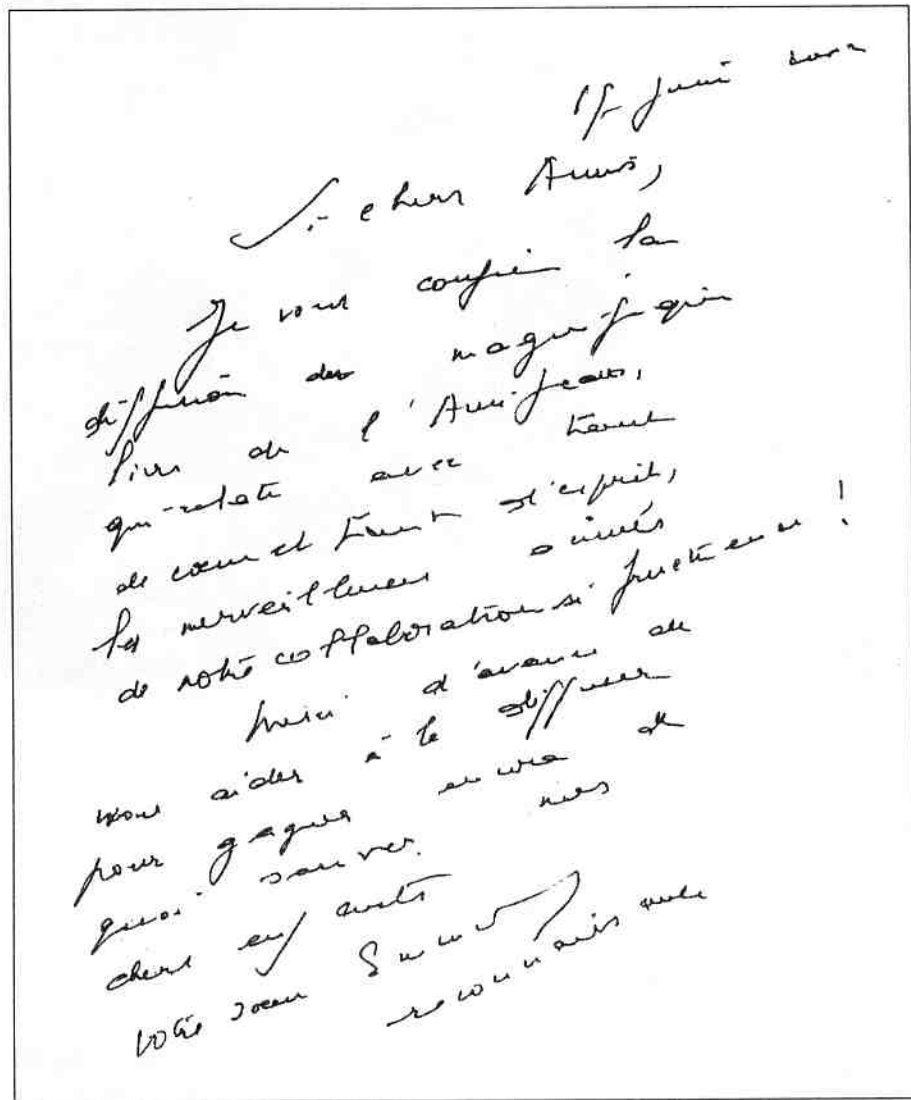 15 juin 2002
Si chers Amis,
Je vous confie la
diffusion du magnifique
livre de l'Ami Jean,
qui relate avec tant
de coeur et tant d'esprit,
les merveilleuses années
de notre collaboration si fructueuse !
Merci d'avance de
nous aider à le diffuser
pour gagner encore de
quoi sauver nos
chers enfants
Votre soeur Emmanuelle
reconnaissante